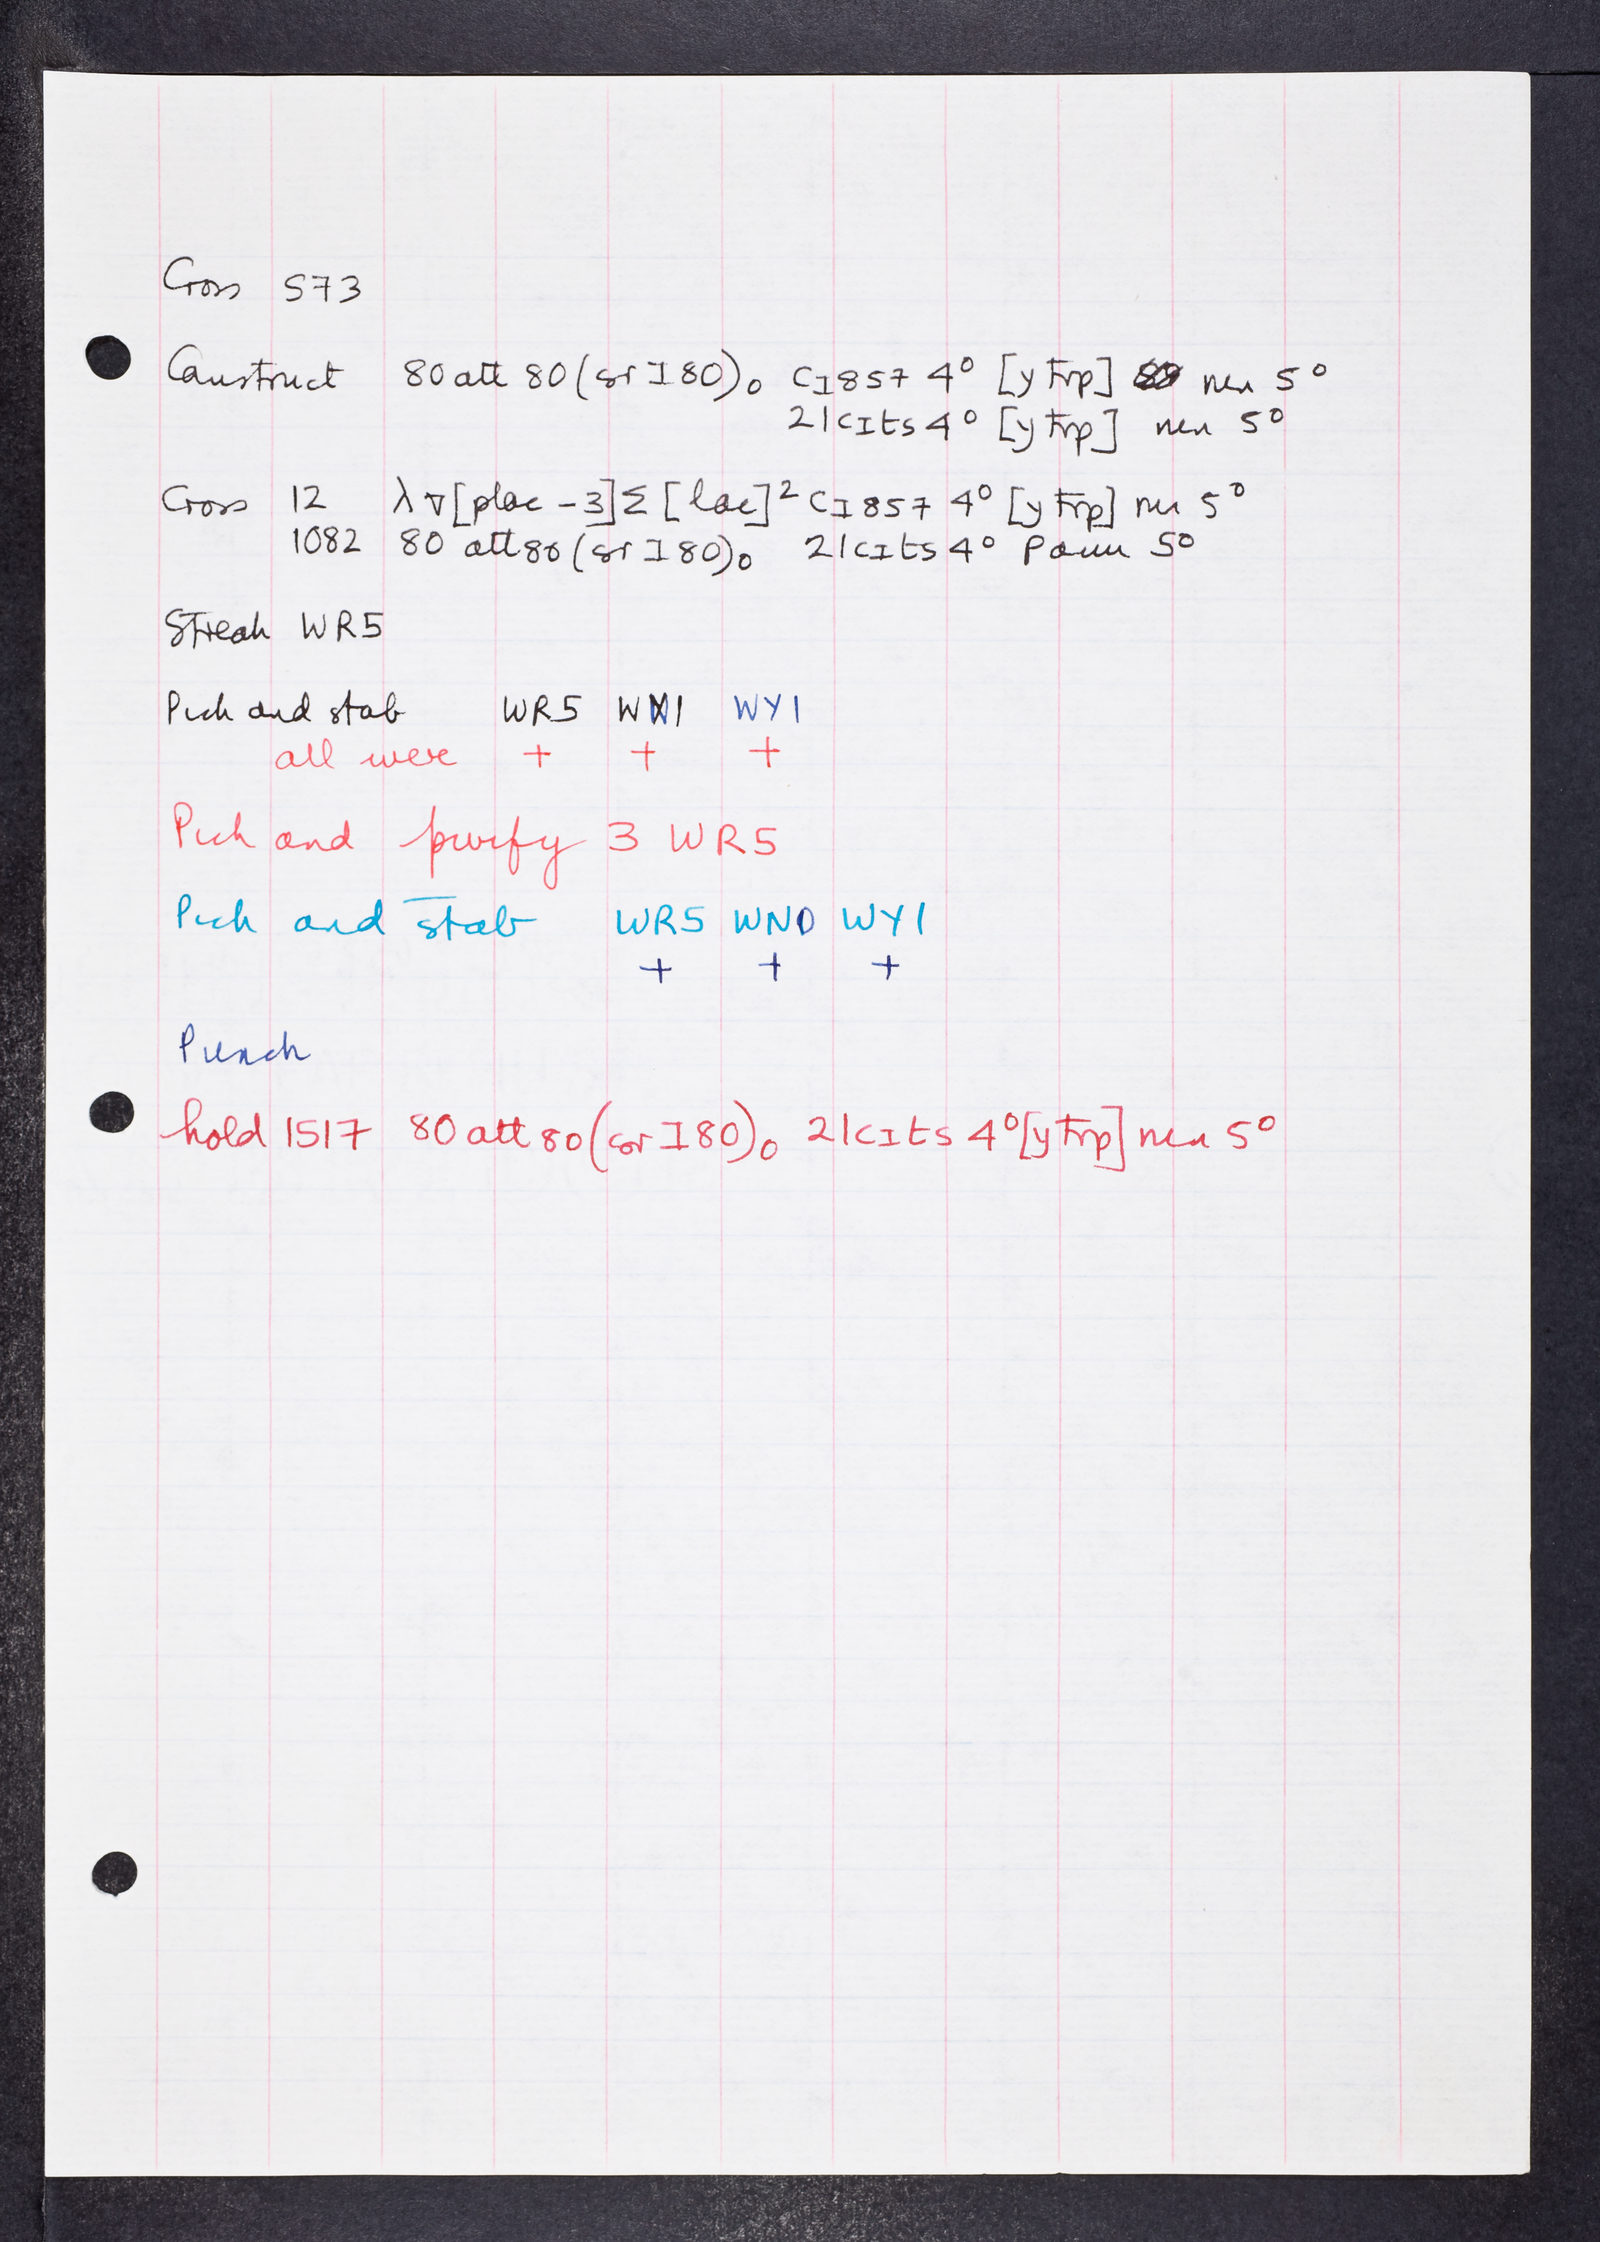 Cross 573
Construct 80 att 80 (sr I 80)₀ CI857 4⁰ [y Trp] nin 5⁰
21 cIts 4⁰ [y Trp] nin 5⁰
Cross 12 λ ∇ [plac - 3] Σ [lac]² CI857 4⁰ [y Trp] nin 5⁰
1082 80 att 80 (sr I 80)₀ 21 cIts 4⁰ Pam 5⁰
Streak WR5
Pick and stab WR5 WN1 WY1
all were + + +
Pick and purify 3 WR5
Pick and stab WR5 WN0 WY1
+ + +
Punch
hold 1517 80 att 80 (sr I 80)₀ 21 cIts 4⁰ [y Trp] nin 5⁰